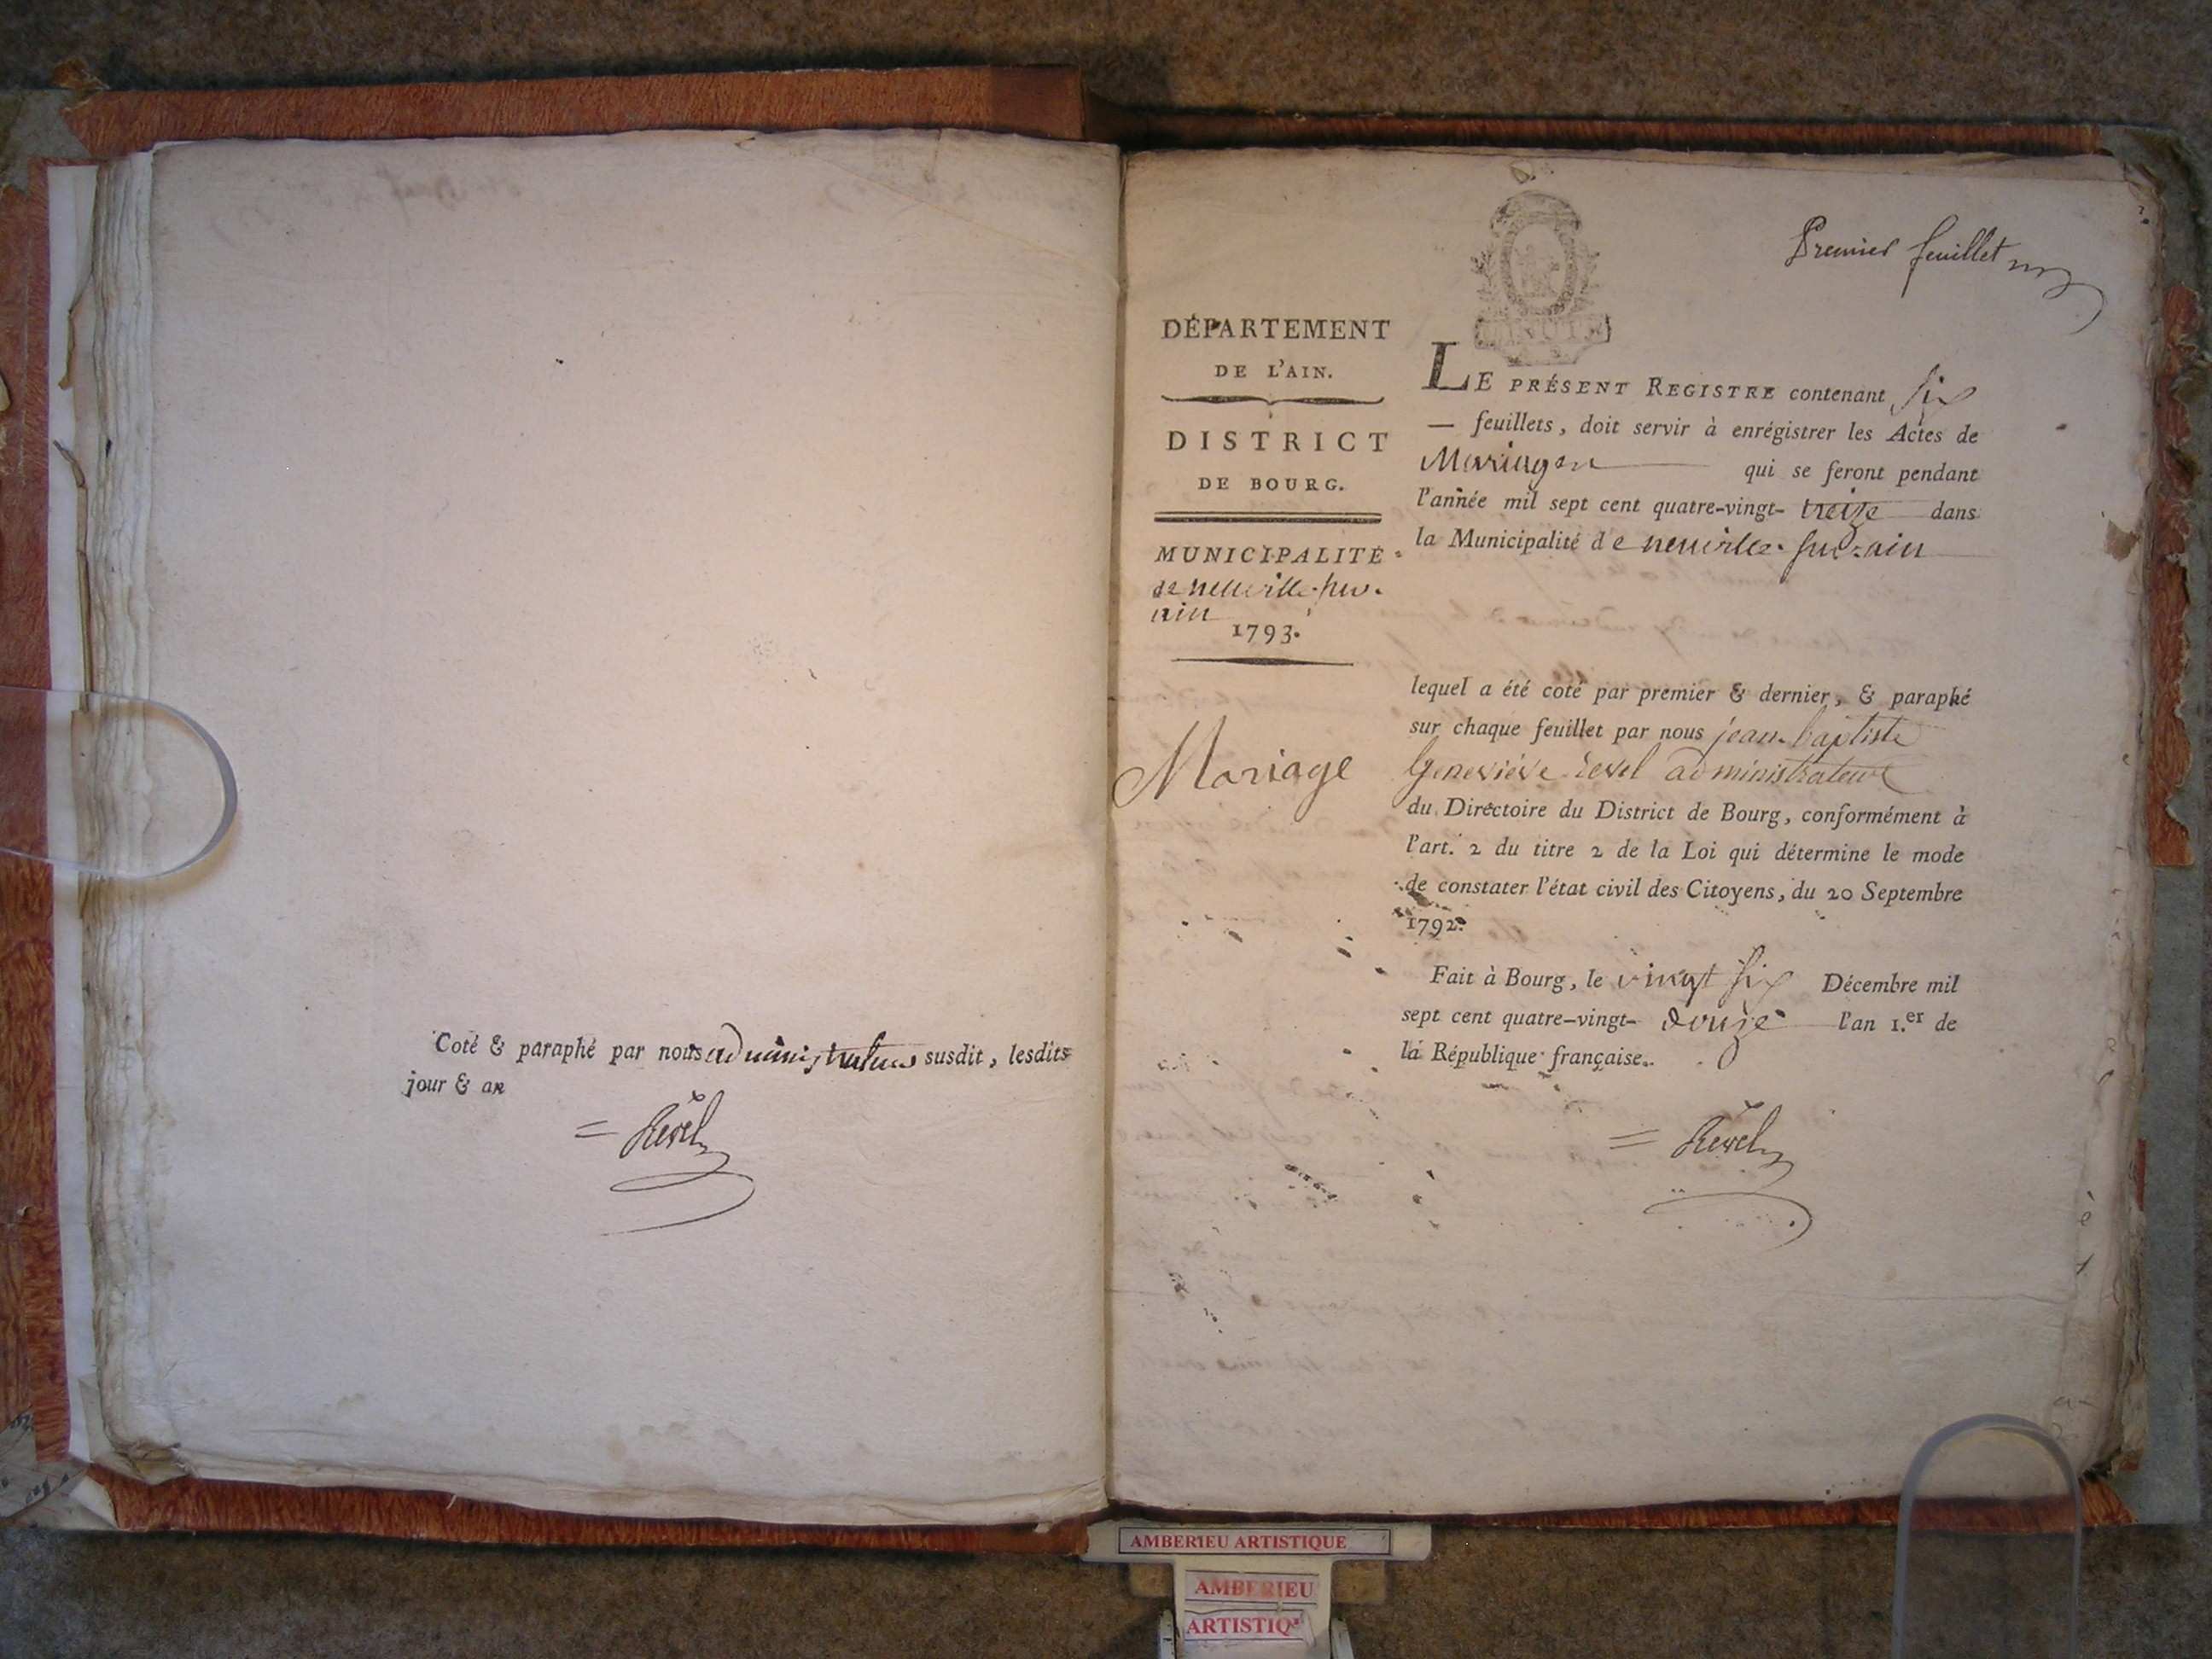 Coté & paraphé par nous administrateur susdit, lesdits
jour & an
= Revel
Premier feuillet
DÉPARTEMENT
DE L'AIN.
DISTRICT
DE BOURG.
MUNICIPALITÉ
de neuville-sur-
ain
1793.
Mariage
LE PRÉSENT REGISTRE contenant six
— feuillets, doit servir à enrégistrer les Actes de
Mariages qui se feront pendant
l'année mil sept cent quatre-vingt- treize dans
la Municipalité de neuville-sur-ain
lequel a été coté par premier & dernier, & paraphé
sur chaque feuillet par nous jean-baptiste
Geneviéve revel administrateur
du Directoire du District de Bourg, conformément à
l'art. 2 du titre 2 de la Loi qui détermine le mode
de constater l'état civil des Citoyens, du 20 Septembre
1792.
Fait à Bourg, le vingt six Décembre mil
sept cent quatre-vingt- douze l'an 1.er de
la République française.
= Revel
AMBERIEU ARTISTIQUE
AMBERIEU
ARTISTIQ